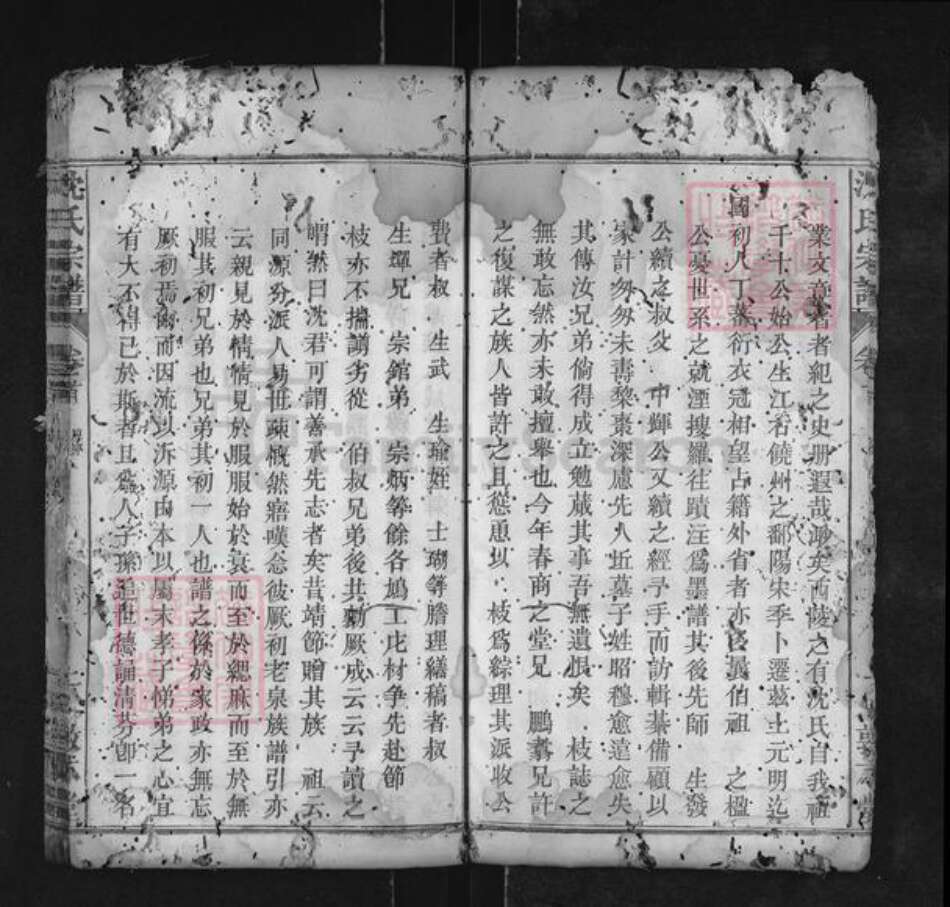 業文章者者紀之史册遐哉邈矣西陵之有沈氏自我祖
千十公始公生江右饒州之鄱陽宋季卜遷茲土元明迄
國初人丁蕃衍衣冠相望占籍外省者亦
伯祖 之楹
公憂世系之就湮搜羅往蹟注爲墨譜其後先師 生發
公續之叔父 中輝公又續之經予手而訪輯綦備顧以
家計匆匆未壽黎棗深慮先人坵墓子姓昭穆愈遠愈失
其傳汝兄弟倘得成立勉蕆其事吾無遺恨矣 枝誌之
無敢忘然亦未敢擅舉也今年春商之堂兄 鵬翥兄許
之復謀之族人皆許之且慫恿以 枝爲綜理其派收公
費者叔 生武 生瑜姪 士瑚等謄理繕稿者叔
生墀兄 宗館弟 宗炳等餘各鳩工庀材爭先赴節
枝亦不揣譾劣從 伯叔兄弟後共勷厥成云云予讀之
喟然曰沈君可謂善承先志者矣昔靖節贈其族 祖云
同源分派人易世疎慨然寤嘆念彼厥初老泉族譜引亦
云親見於情情見於服服始於衰而至於緦麻而至於無
服其初兄弟也兄弟其初一人也譜之係於家政亦無忘
厥初焉爾而因流以泝源由本以屬末孝子悌弟之心宜
有大不得已於斯者且爲人子孫追世德誦清芬卽一名
沈氏宗譜
卷首
沈氏宗譜
卷首
FamilySearch